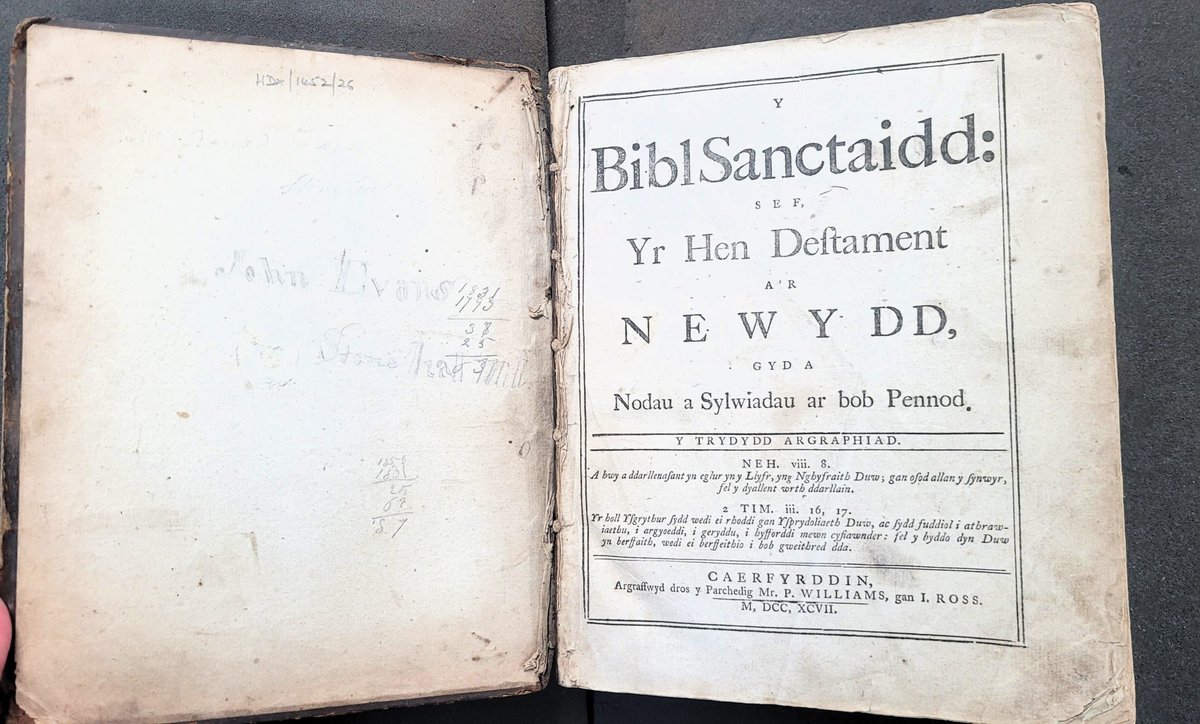 HDX/1452/26
John Evans
1821
1793
38
25
Stone Hall Mill
25
62
87
Y
Bibl Sanctaidd:
SEF,
Yr Hen Deſtament
A'R
NEWYDD,
GYD A
Nodau a Sylwiadau ar bob Pennod.
Y TRYDYDD ARGRAPHIAD.
NEH. viii. 8.
A hwy a ddarllenaſant yn eglur yn y Llyfr, yng Nghyfraith Duw; gan oſod allan y ſynwyr,
fel y dyallent wrth ddarllain.
2 TIM. iii. 16, 17.
Yr holl Yſgrythur ſydd wedi ei rhoddi gan Yſprydoliaeth Duw, ac ſydd fuddiol i athraw-
iaethu, i argyoeddi, i geryddu, i hyfforddi mewn cyfiawnder: fel y byddo dyn Duw
yn berffaith, wedi ei berffeithio i bob gweithred dda.
CAERFYRDDIN,
Argraffwyd dros y Parchedig Mr. P. WILLIAMS, gan I. ROSS.
M, DCC, XCVII.